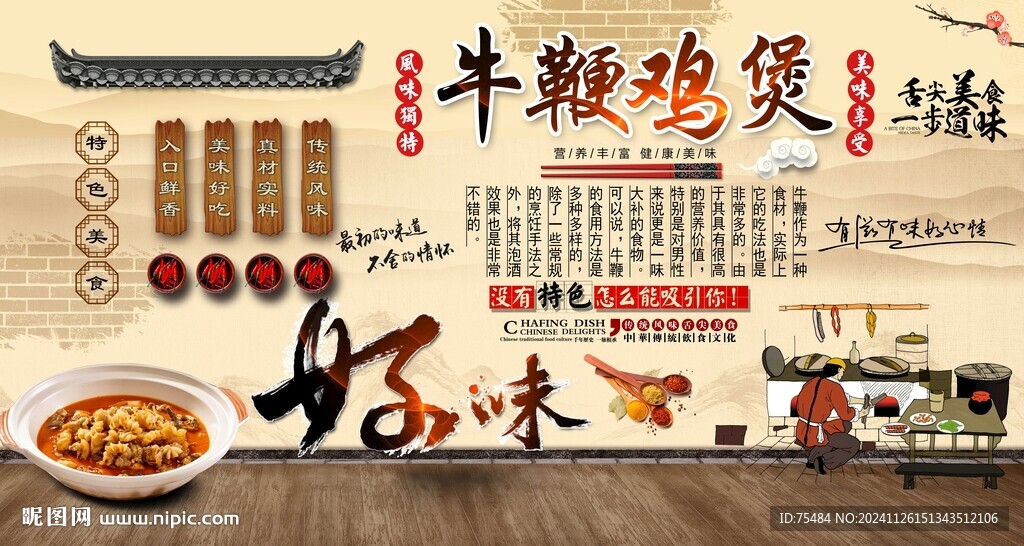 風味獨特
牛鞭鸡煲
美味享受
舌尖美食
一步道味
A BITE OF CHINA
营/养/丰/富 健/康/美/味
特色美食
入口鲜香
美味好吃
真材实料
传统风味
最初的味道
不舍的情怀
牛鞭作为一种
食材，实际上
它的吃法也是
非常多的。由
于其具有很高
的营养价值，
特别是对男性
来说更是一味
大补的食物。
可以说，牛鞭
的食用方法是
多种多样的，
除了一些常规
的烹饪手法之
外，将其泡酒
效果也是非常
不错的。
有滋有味好心情
没有特色怎么能吸引你！
CHAFING DISH
CHINESE DELIGHTS
Chinese traditional food culture 千年歷史 一脉相承
传统风味舌尖美食
中華傳統飲食文化
好味
昵图网 www.nipic.com
ID:75484 NO:20241126151343512106